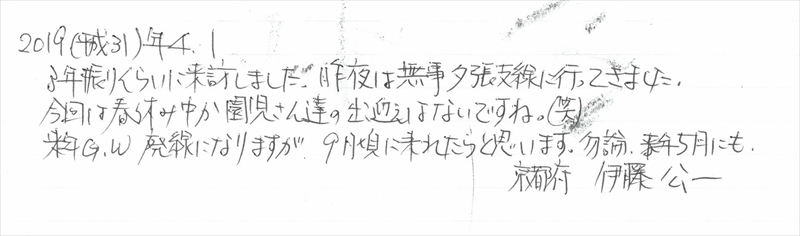 2019(平成31)年4.1
3年振りくらいに来訪しました。昨夜は無事夕張支線に行ってきました。
今回は春休み中か園児さん達の出迎えはないですね。(笑)
来年G.W 廃線になりますが、9月頃に来れたらと思います。勿論、来年5月にも.
京都府 伊藤公一